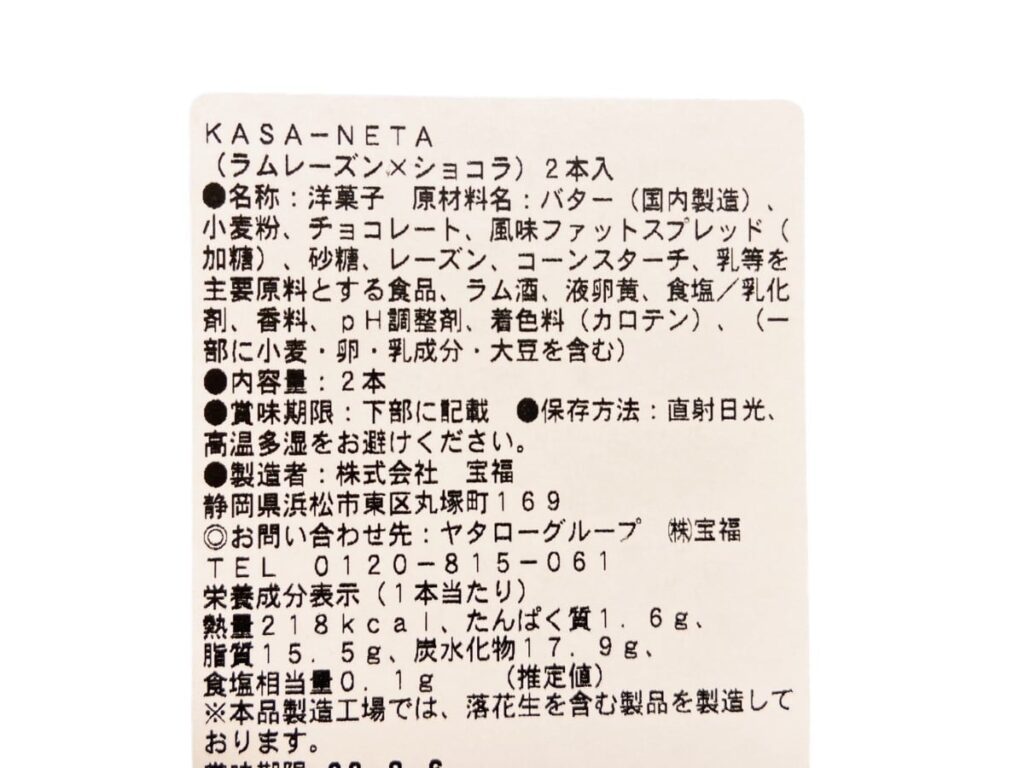 KASA−NETA
（ラムレーズン×ショコラ）2本入
●名称：洋菓子　原材料名：バター（国内製造）、
小麦粉、チョコレート、風味ファットスプレッド（
加糖）、砂糖、レーズン、コーンスターチ、乳等を
主要原料とする食品、ラム酒、液卵黄、食塩／乳化
剤、香料、pH調整剤、着色料（カロテン）、（一
部に小麦・卵・乳成分・大豆を含む）
●内容量：2本
●賞味期限：下部に記載　●保存方法：直射日光、
高温多湿をお避けください。
●製造者：株式会社　宝福
静岡県浜松市東区丸塚町169
◎お問い合わせ先：ヤタローグループ　㈱宝福
TEL　0120−815−061
栄養成分表示（1本当たり）
熱量218kcal、たんぱく質1．6g、
脂質15．5g、炭水化物17．9g、
食塩相当量0．1g　　（推定値）
※本品製造工場では、落花生を含む製品を製造して
おります。
賞味期限